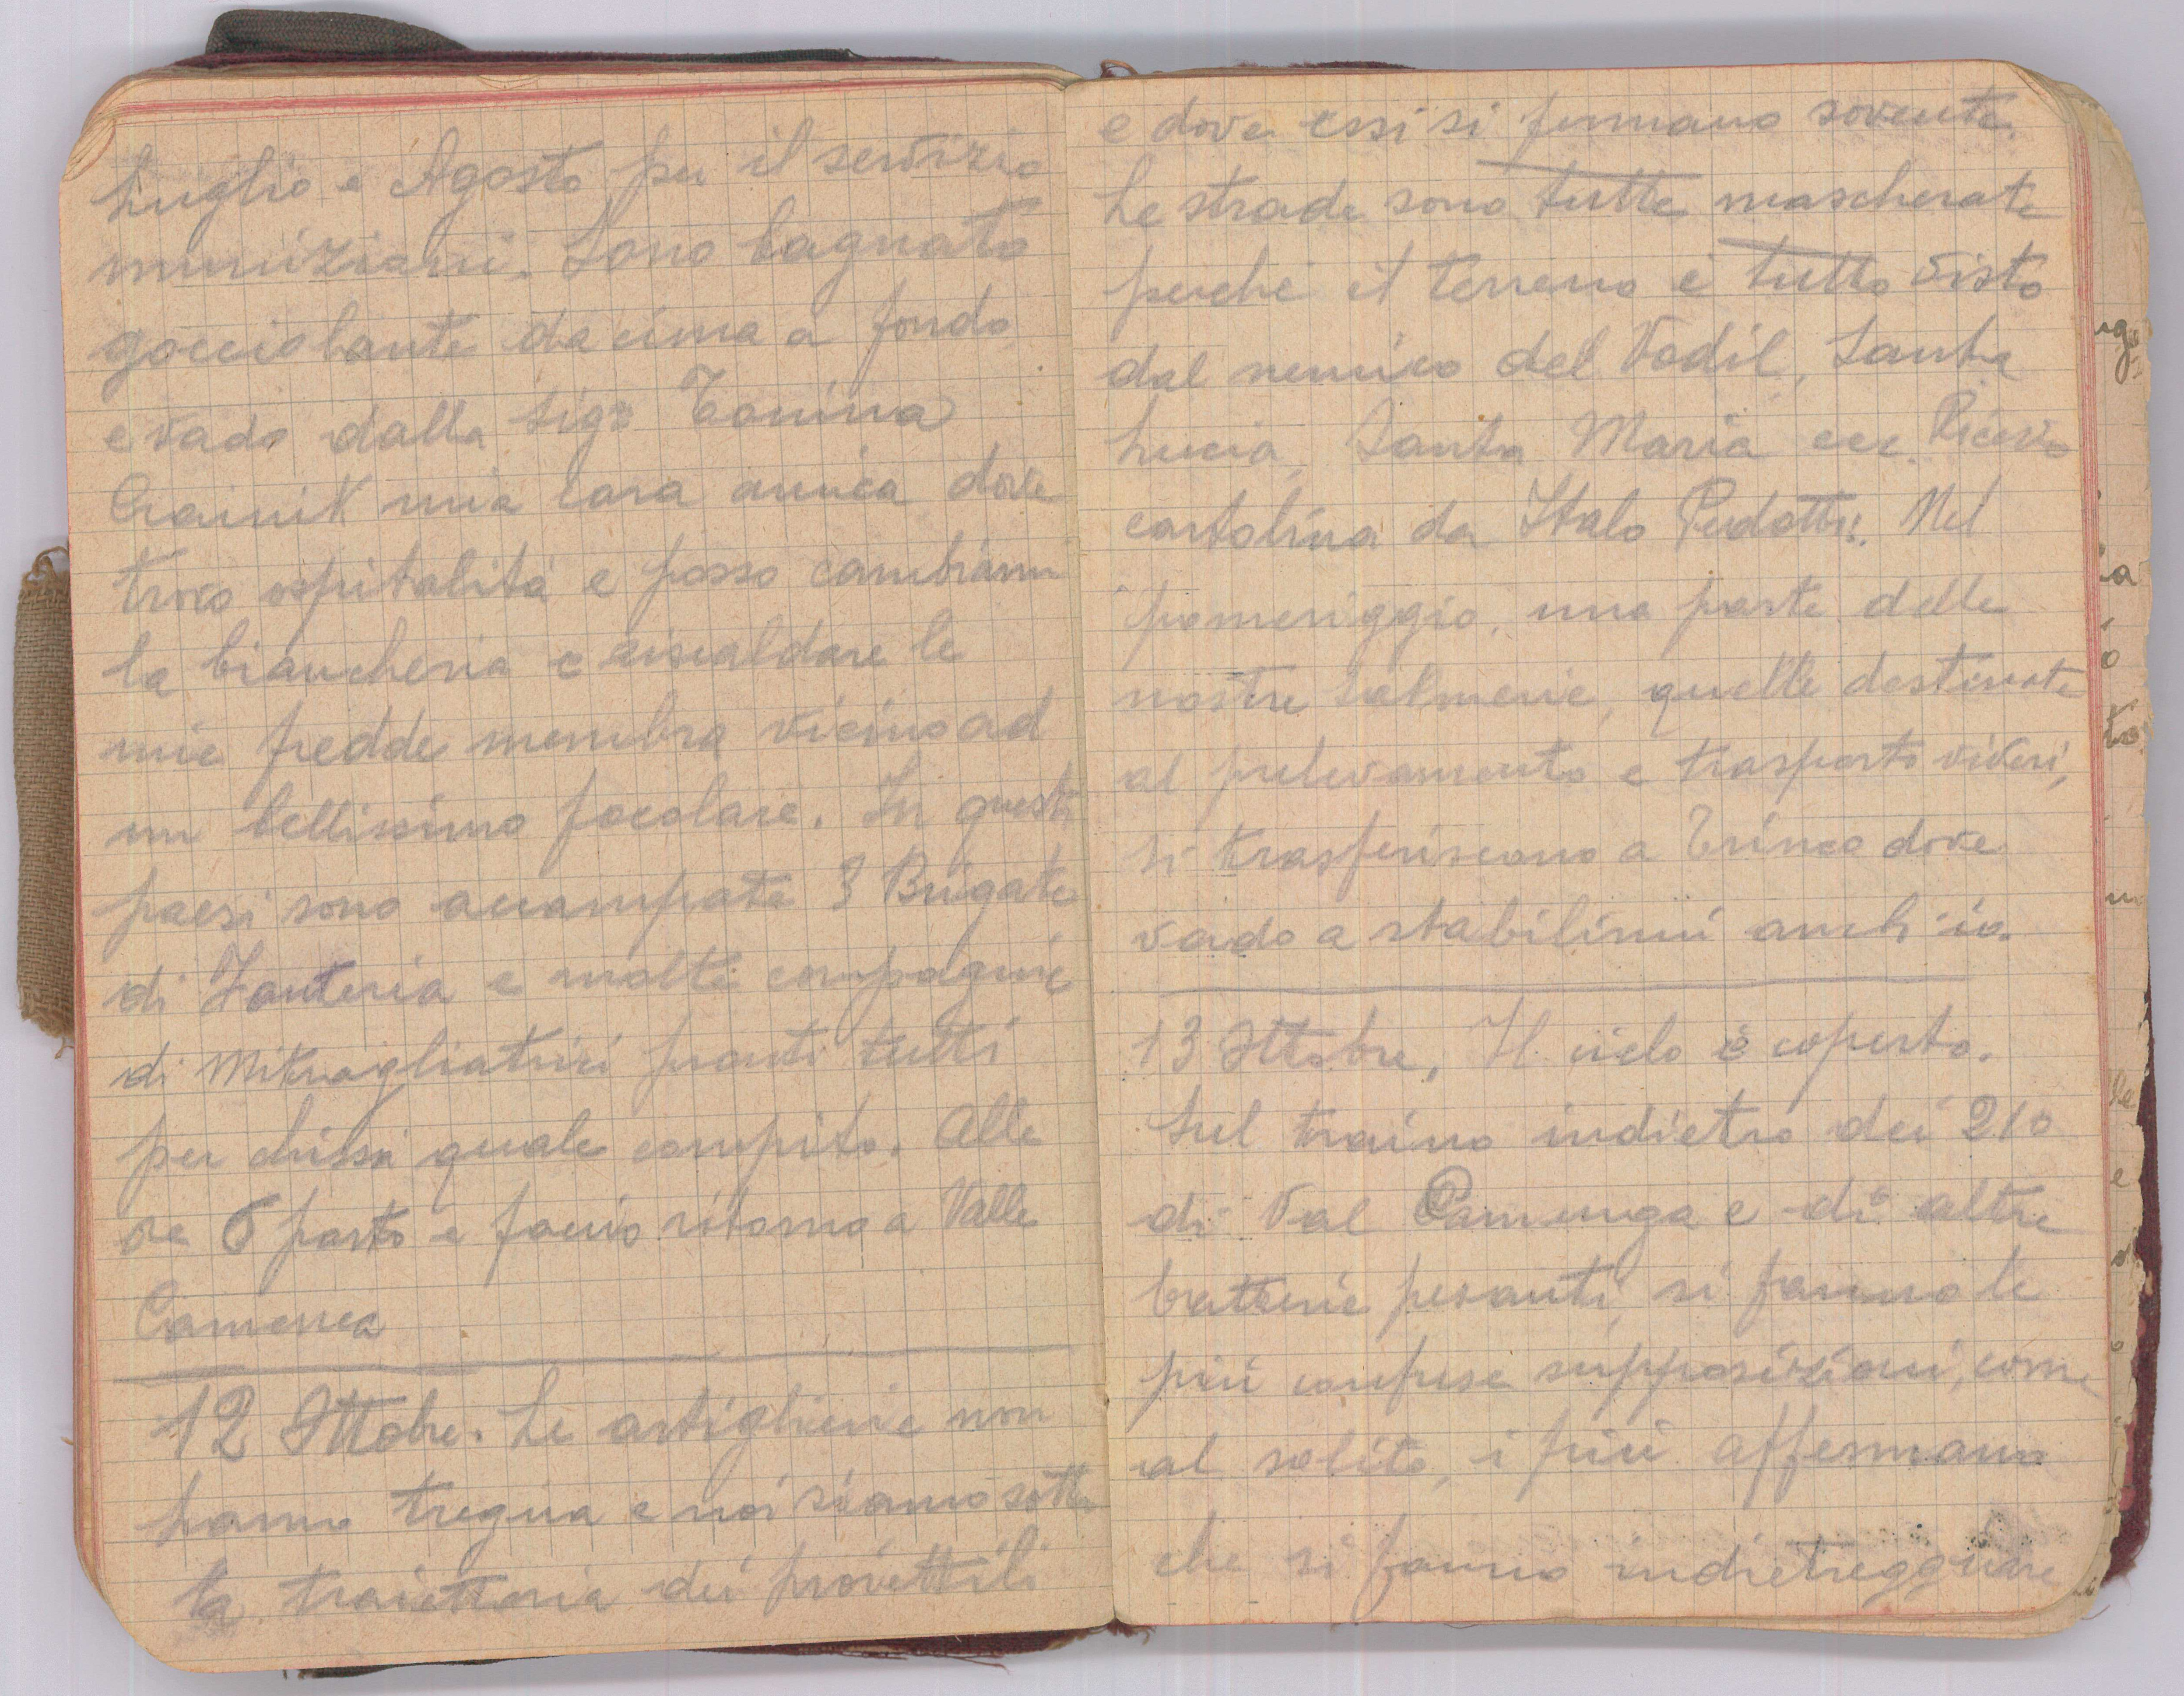 Luglio e Agosto per il servizio
munizioni. Sono bagnato
gocciolante da cima a fondo
e vado dalla Sigra Tonina
Crainik mia cara amica dove
trovo ospitalità e posso cambiarmi
la biancheria e riscaldare le
mie fredde membra vicino ad
un bellissimo focolare. In questi
paesi sono accampate 3 Brigate
di Fanteria e molte compagnie
di Mitragliatrici pronti tutti
per chissà quale compito. Alle
ore 6 parto e faccio ritorno a Valle
Camenca
12 Ottobre. Le artiglierie non
hanno tregua e noi siamo sotto
la traiettoria dei proiettili
e dove essi si fermano sovente.
Le strade sono tutte mascherate
perché il terreno è tutto visto
dal nemico del Vodil, Santa
Lucia, Santa Maria ecc. Ricevo
cartolina da Italo Pedotti. Nel
pomeriggio, una parte delle
nostre salmerie, quelle destinate
al prelevamento e trasporto viveri,
si trasferiscono a Trinco dove
vado a stabilirmi anch'io.
13 Ottobre. Il cielo è coperto.
Sul traino indietro dei 210
di Val Camenga e di altre
batterie pesanti, si fanno le
più confuse supposizioni, come
al solito, i più affermano
che si fanno indietreggiare